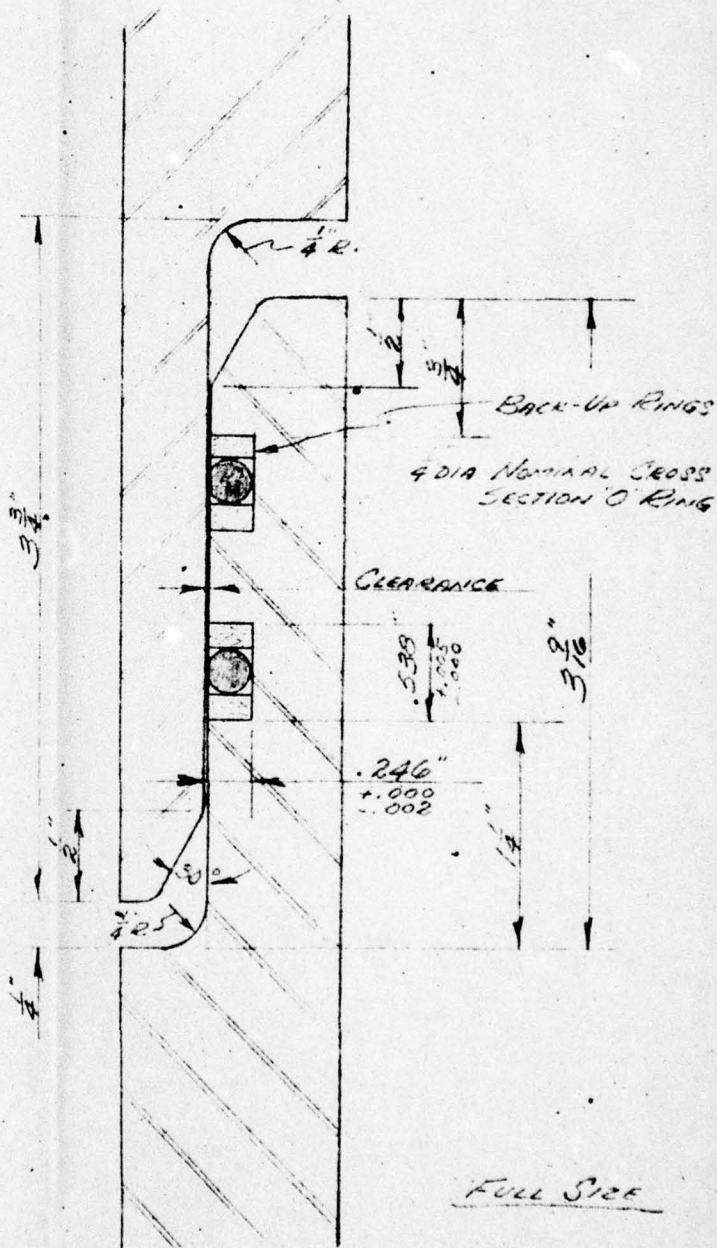 1/4" R.
1/2"
3/4"
BACK-UP RINGS
1/4 DIA NOMINAL CROSS
SECTION "O" RING
3 3/4"
CLEARANCE
.538
+.005
-.000
3 9/16"
.246"
+.000
-.002
1/2"
30°
1 1/4"
1/4" R
1/4"
FULL SIZE